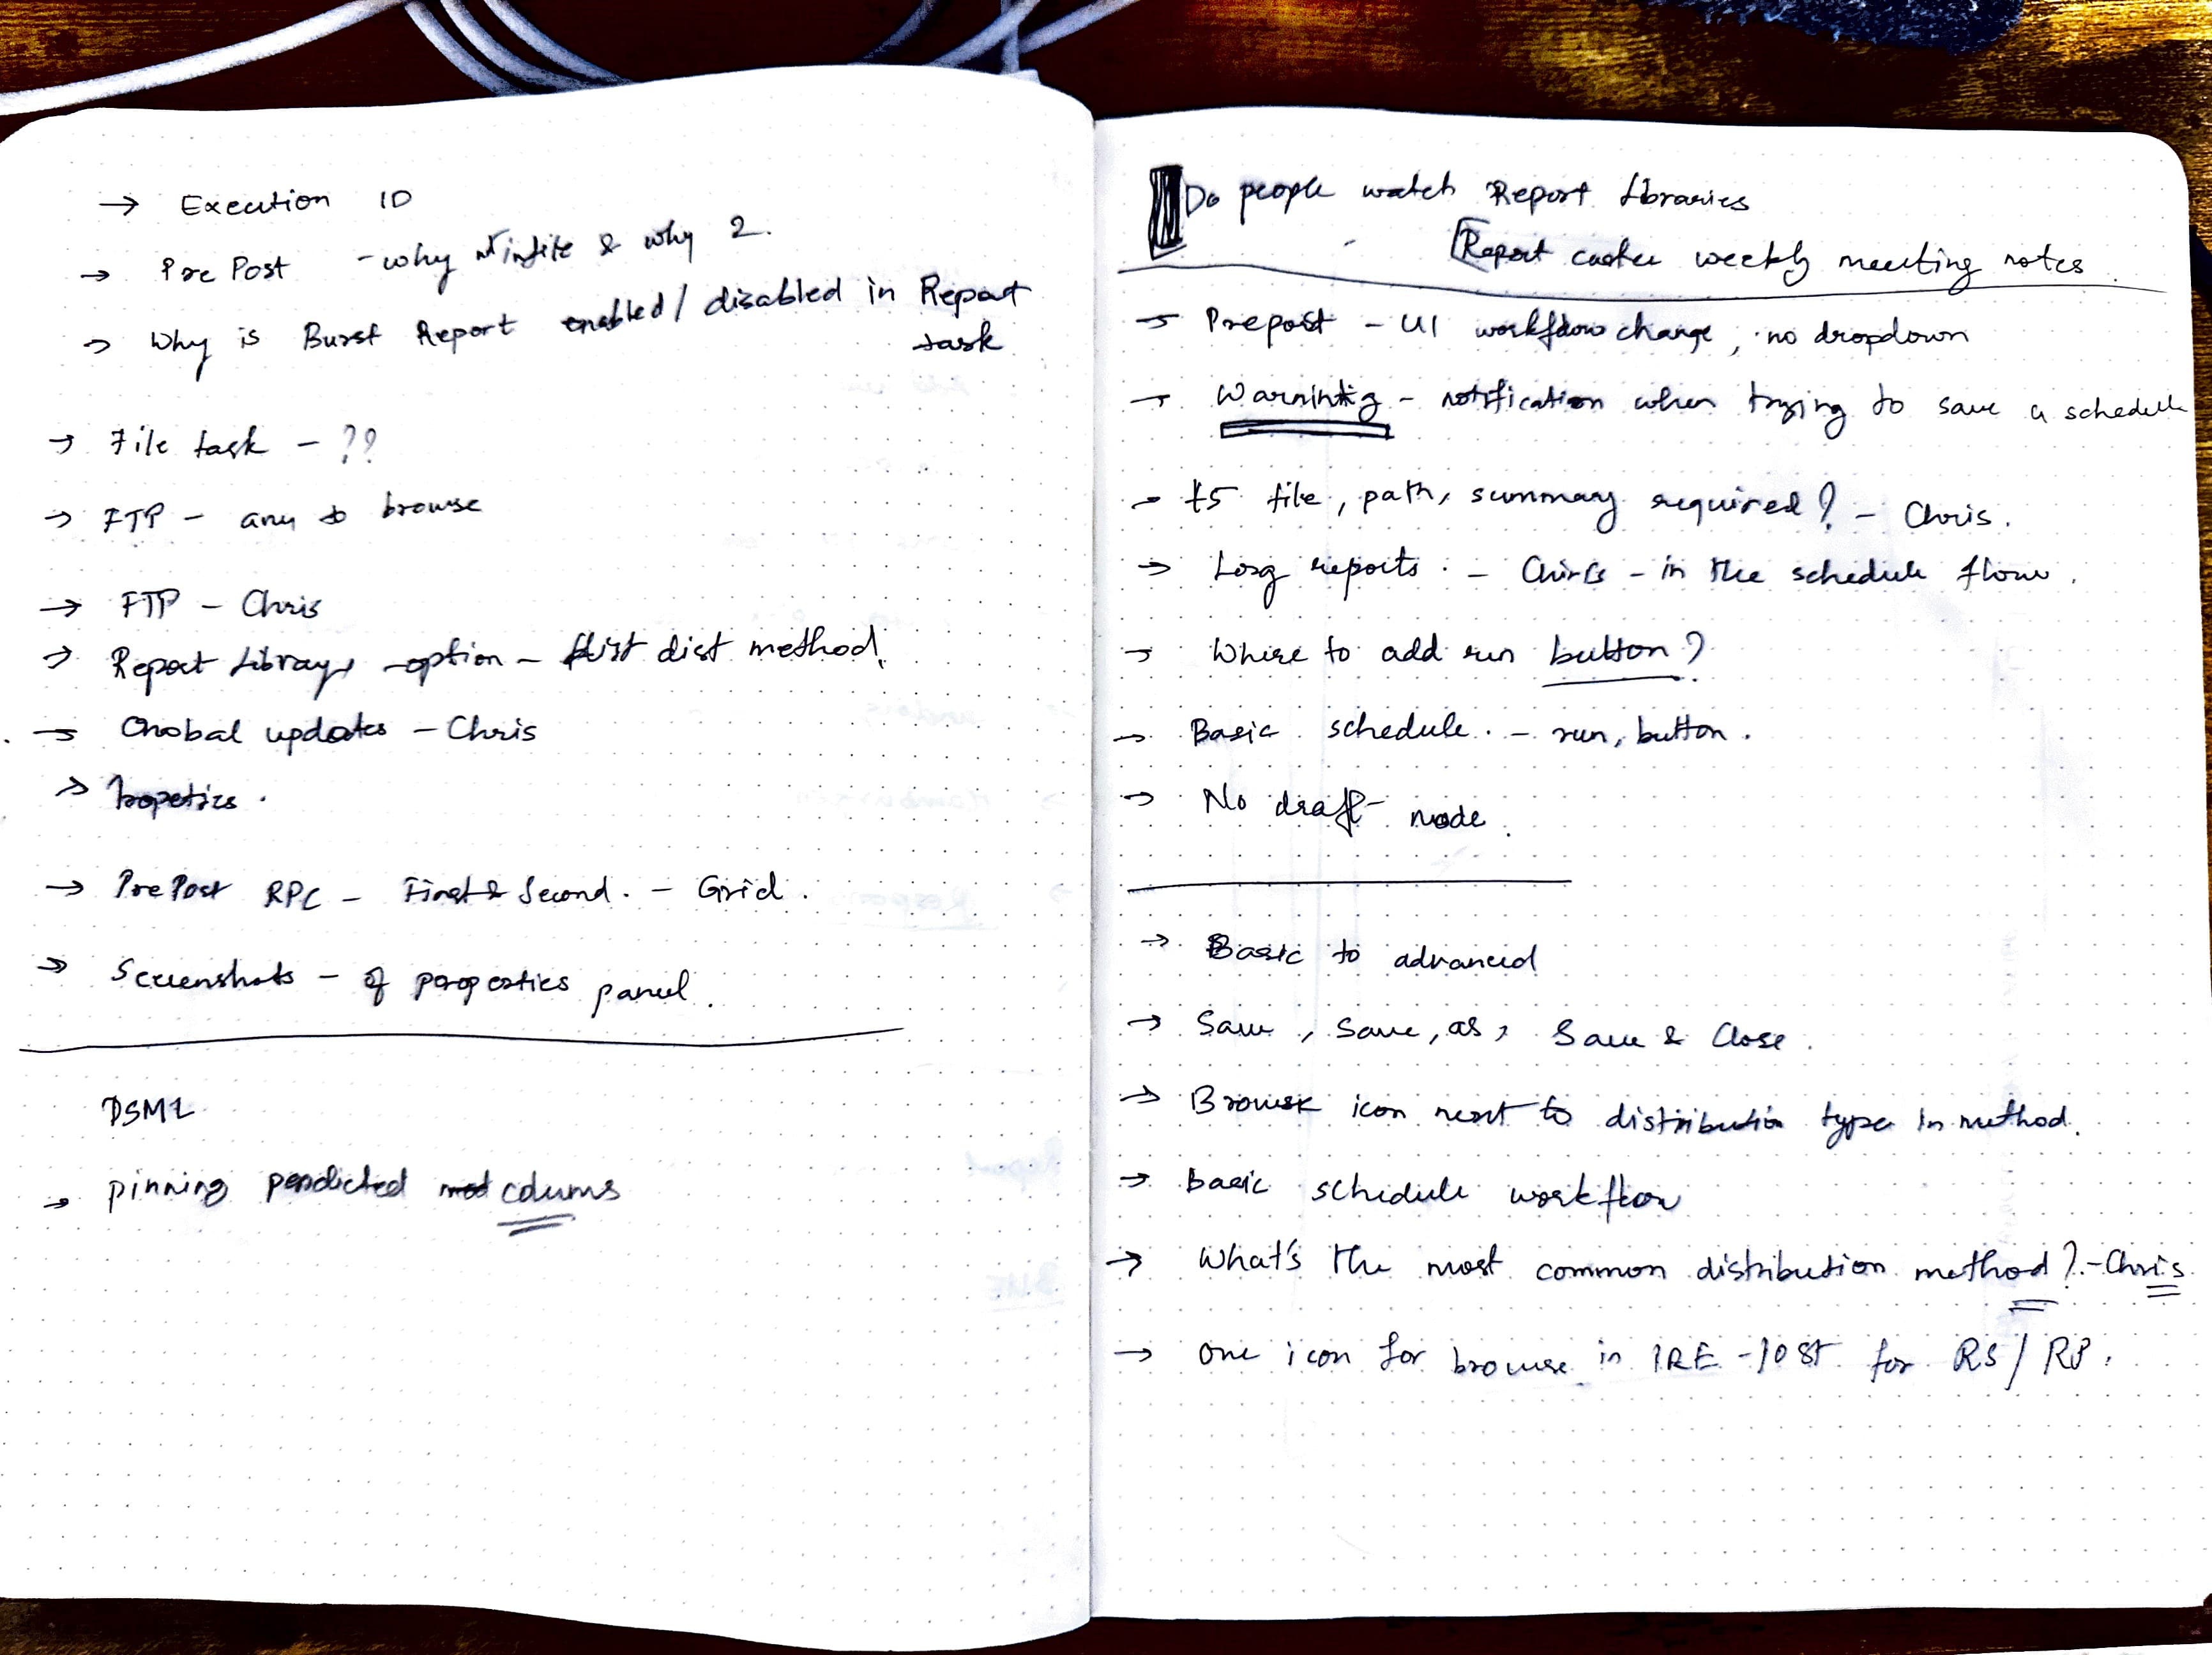 → Execution ID
→ Pre Post - why infite & why 2.
→ Why is Burst Report enabled / disabled in Report
task
→ File task - ??
→ FTP - any to browse
→ FTP - Chris
→ Report Library option - dist method.
→ Global updates - Chris
→ Pre Post RPC - First & Second. - Grid.
→ Screenshots - of properties panel.
DSML
→ pinning predicted colums
Do people watch Report libraries
Report caster weekly meeting notes.
→ Prepost - UI workflow change, no dropdown
→ Warning - notification when trying to save a schedule
→ file, path, summary required? - Chris.
→ Long reports. - Chris - in the schedule flow.
→ Where to add run button?
→ Basic schedule. - run, button.
→ No draft mode.
→ Basic to advanced
→ Save, Save, as, Save & Close.
→ Browse icon next to distribution type in method.
→ basic schedule workflow
→ What's the most common distribution method? - Chris
→ one icon for browse in for RS/RP.